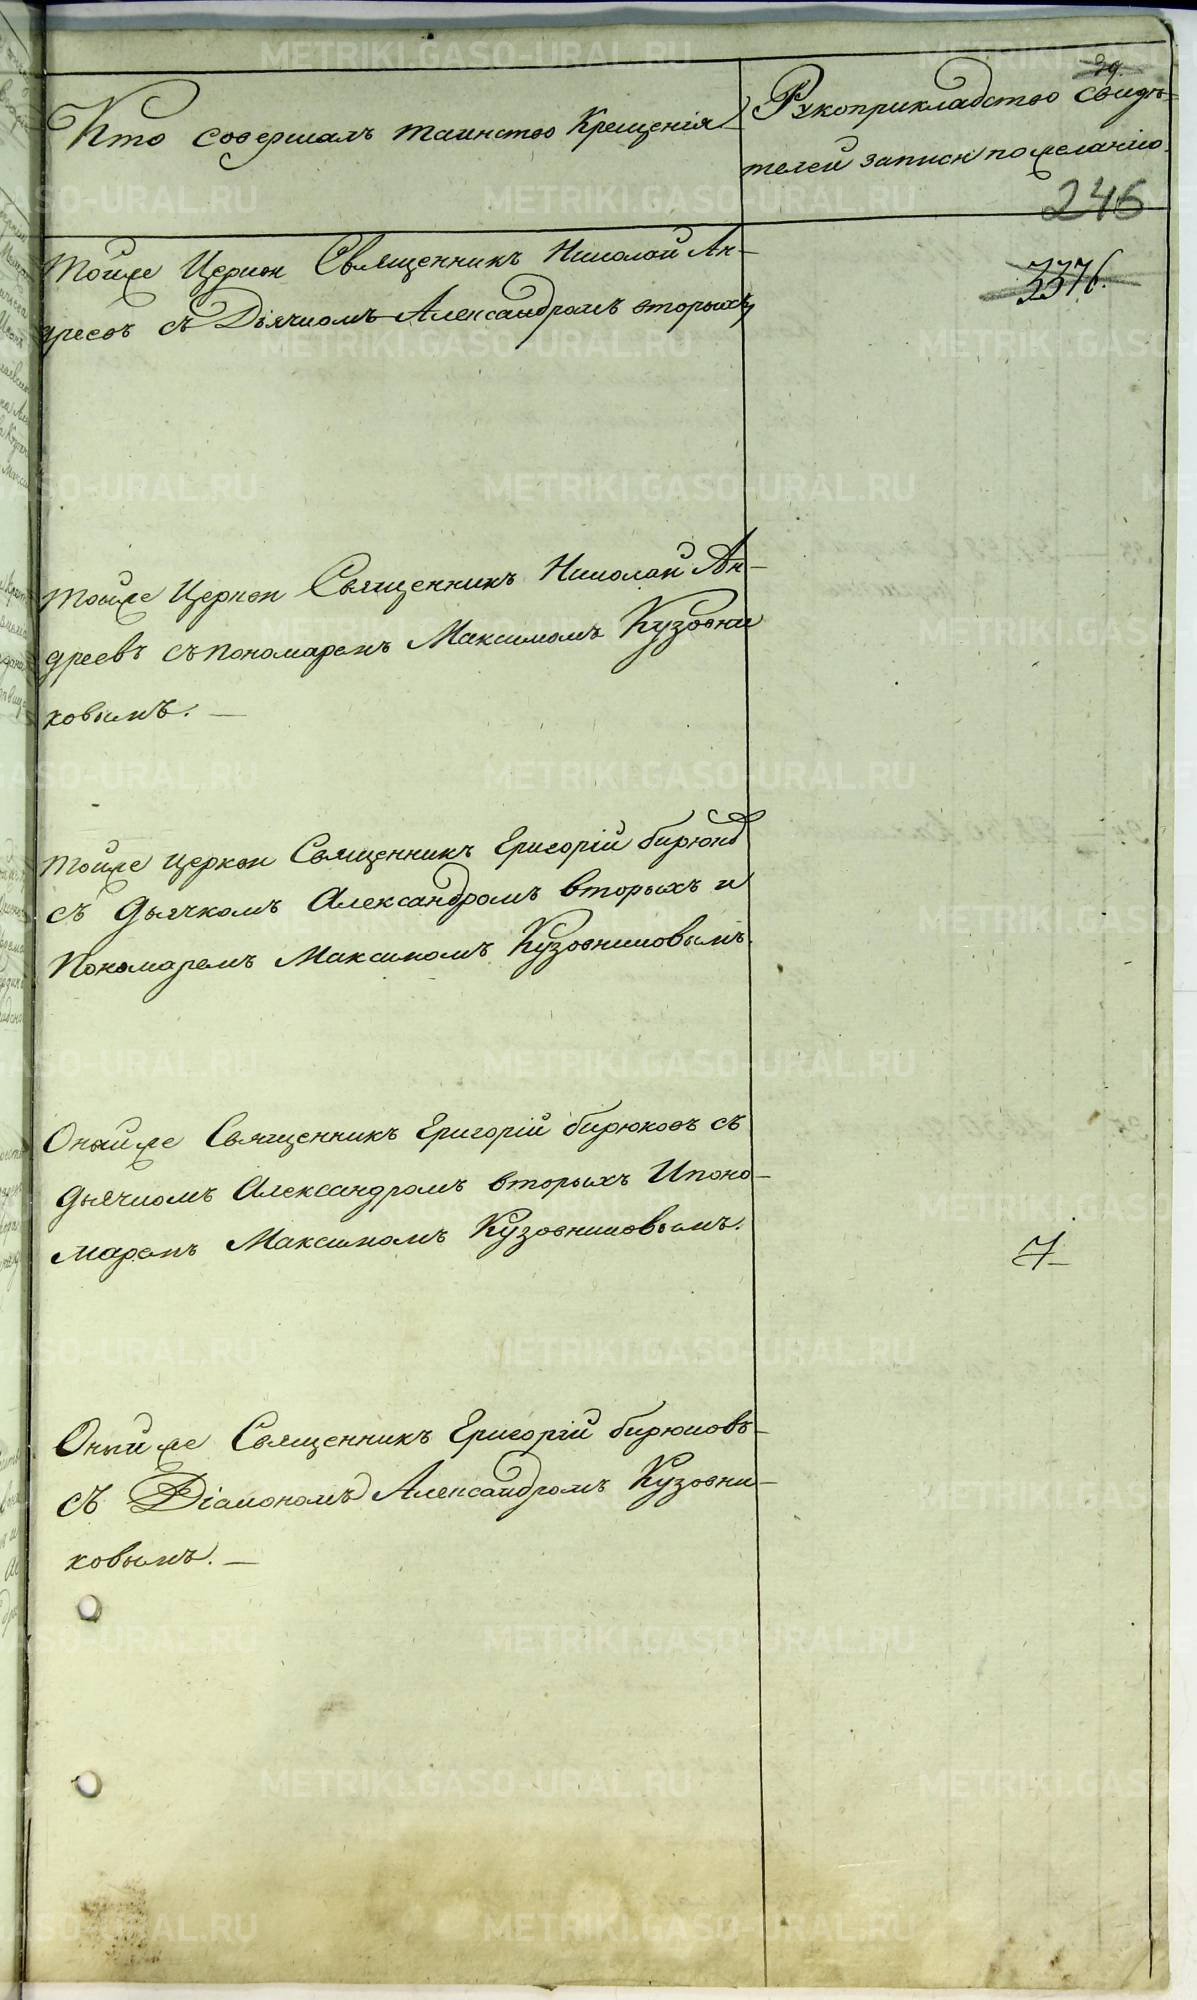 39.
Кто совершалъ таинство Крещенія
Рукоприкладство свидѣ-
телей записи по желанію.
246
Тойже Церкви Священникъ Николай Ан-
дреевъ съ Дьячкомъ Александромъ вторыхъ
337б.
Тойже Церкви Священникъ Николай Ан-
дреевъ съ пономаремъ Максимомъ Кузовни
ковымъ. —
Тойже церкви Священникъ Григорій бирюковъ
съ дьячкомъ Александромъ вторыхъ и
Пономаремъ Максимомъ Кузовниковымъ.
Оныйже Священникъ Григорій бирюковъ съ
дьячкомъ Александромъ вторыхъ И поно-
маремъ Максимомъ Кузовниковымъ.
7
Оныйже Священникъ Григорій бирюковъ-
съ Діакономъ Александромъ Кузовни-
ковымъ. —
METRIKI.GASO-URAL.RU